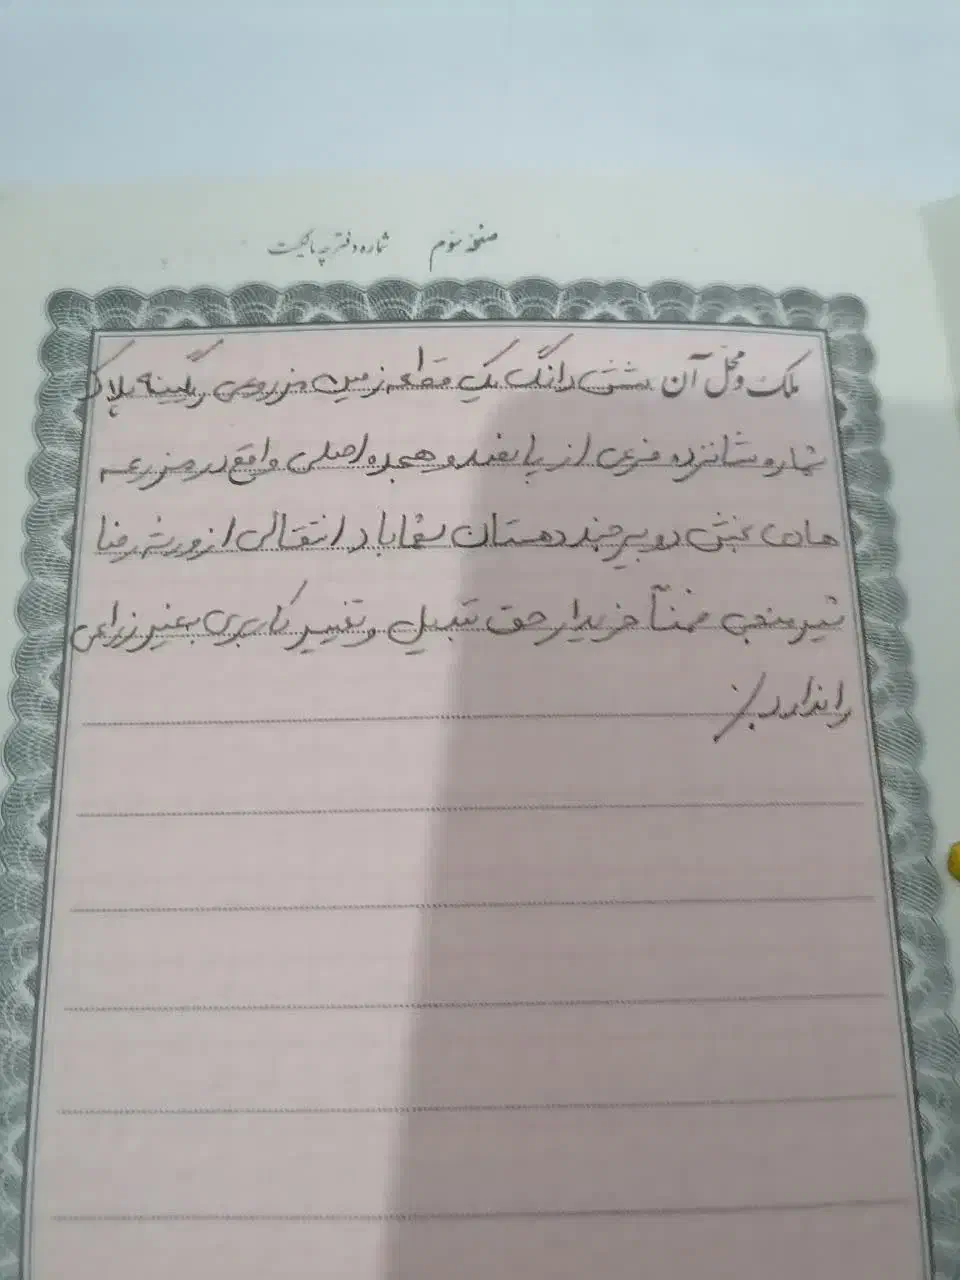 صفحه سوم شماره دفترچه مالکیت
ملک و محل آن ششدانگ یک قطعه زمین مزروعی پلاک
شماره شانزده فرعی از پانصد و هجده اصلی واقع در مزرعه
بخش دو بیرجند دهستان انتقالی از ورثه رضا
ضمناً خریدار حق تبدیل و تغییر کاربری بغیر زراعی
را ندارد./